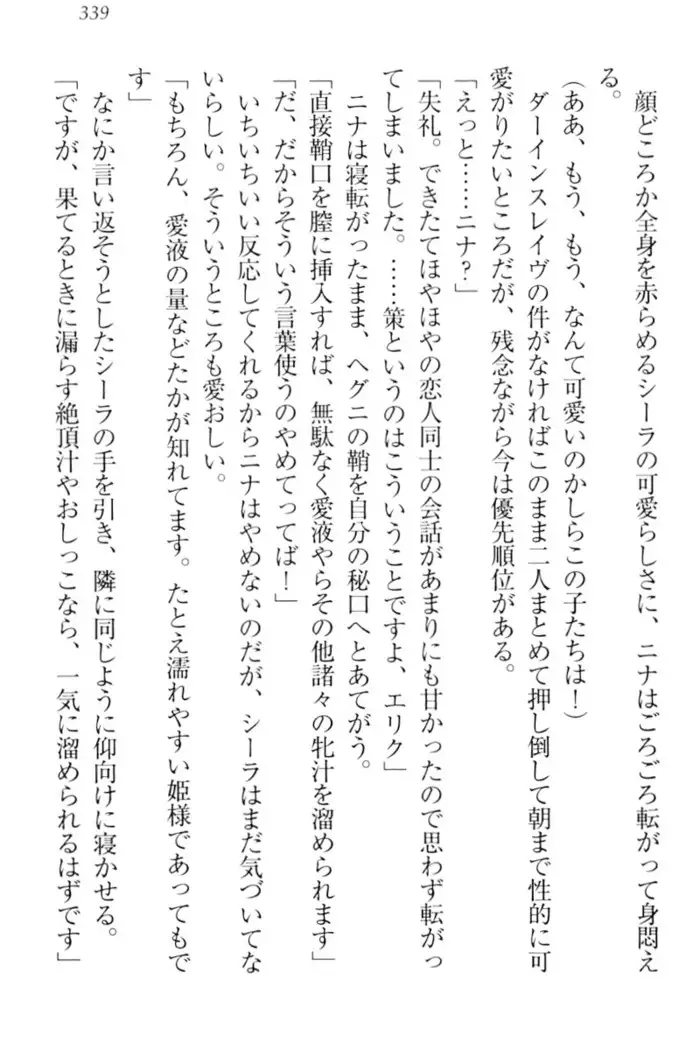 339
顔どころか全身を赤らめるシーラの可愛らしさに、ニナはごろごろ転がって身悶え
る。
(ああ、もう、もう、なんて可愛いのかしらこの子たちは!)
ダーインスレイヴの件がなければこのまま二人まとめて押し倒して朝まで性的に可
愛がりたいところだが、残念ながら今は優先順位がある。
「えっと……ニナ?」
「失礼。できたてほやほやの恋人同士の会話があまりにも甘かったので思わず転がっ
てしまいました。……策というのはこういうことですよ、エリク」
ニナは寝転がったまま、ヘグニの鞘を自分の秘口へとあてがう。
「直接鞘口を膣に挿入すれば、無駄なく愛液やらその他諸々の牝汁を溜められます」
「だ、だからそういう言葉使うのやめてってば!」
いちいちいい反応してくれるからニナはやめないのだが、シーラはまだ気づいてな
いらしい。そういうところも愛おしい。
「もちろん、愛液の量などたかが知れてます。たとえ濡れやすい姫様であってもで
す」
なにか言い返そうとしたシーラの手を引き、隣に同じように仰向けに寝かせる。
「ですが、果てるときに漏らす絶頂汁やおしっこなら、一気に溜められるはずです」